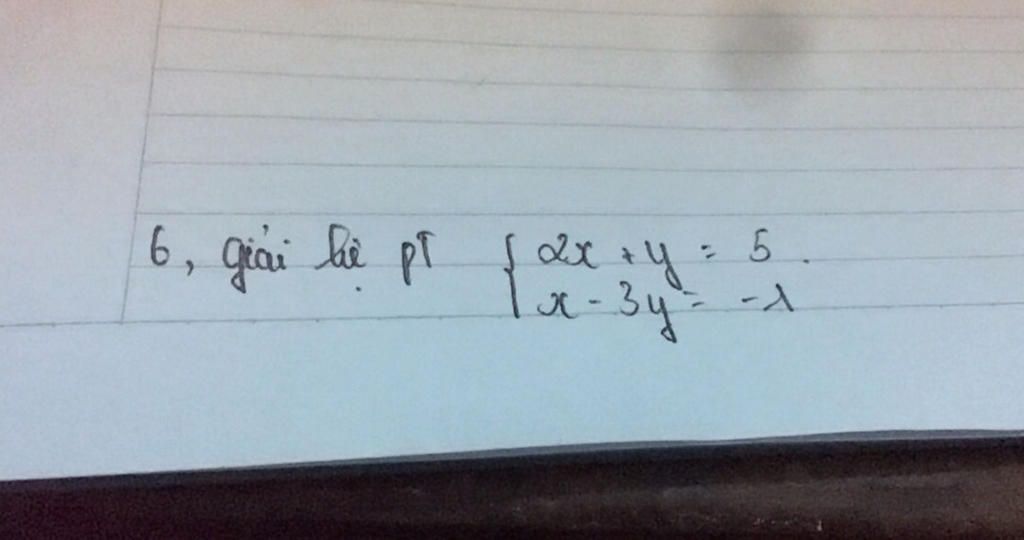 6, giải hệ pT { 2x + y = 5 .
x - 3y = -1